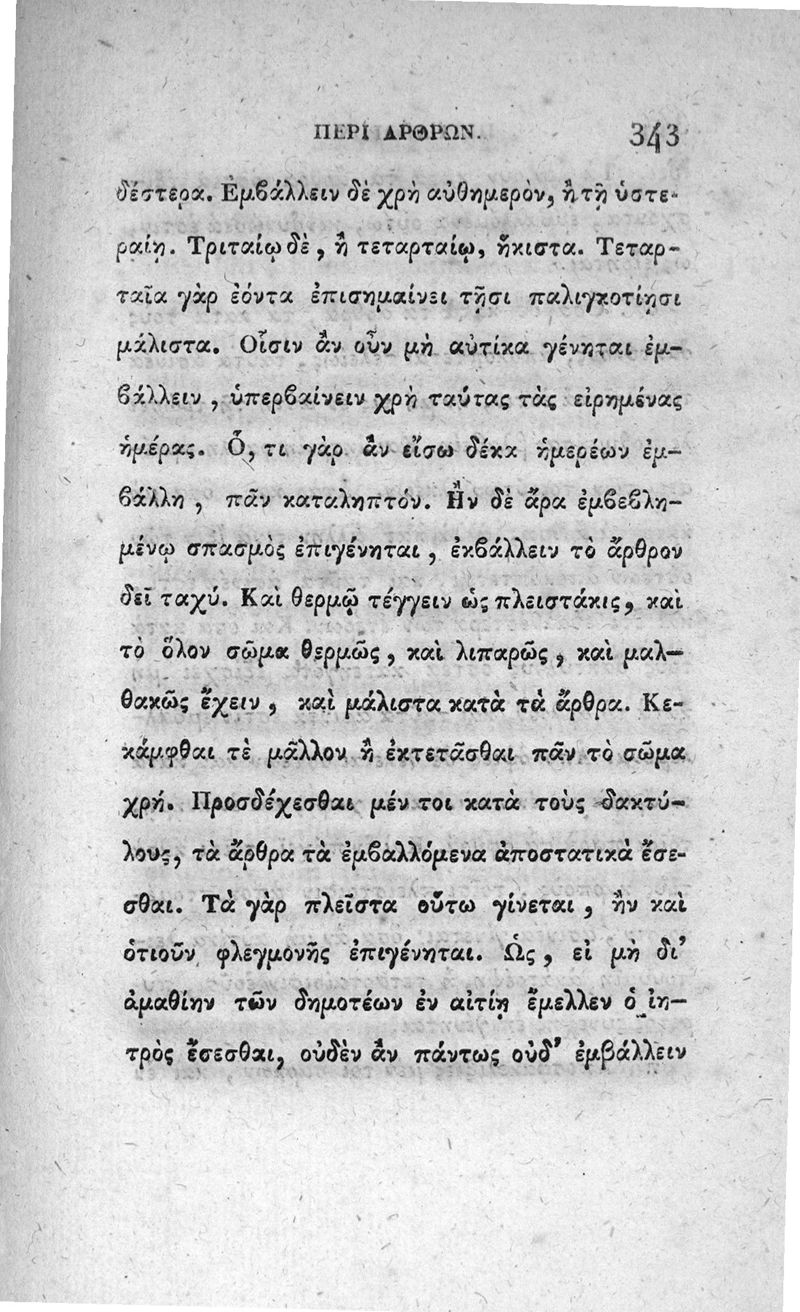 ΠΕΡΙ ΑΡΘΡΩΝ. 343
δέστερα. Ἐμβάλλειν δὲ χρὴ αὐθημερὸν, ἢ τῇ ὑστε-
ραίῃ. Τριταίῳ δὲ, ἢ τεταρταίῳ, ἥκιστα. Τεταρ-
ταῖα γὰρ ἐόντα ἐπισημαίνει τῇσι παλιγκοτίῃσι
μάλιστα. Οἷσιν ἂν οὖν μὴ αὐτίκα γένηται ἐμ-
βάλλειν, ὑπερβαίνειν χρὴ ταύτας τὰς εἰρημένας
ἡμέρας. Ὅ, τι γὰρ ἂν εἴσω δέκα ἡμερέων ἐμ-
βάλλη, πᾶν καταληπτόν. Ἢν δὲ ἄρα ἐμβεβλη-
μένῳ σπασμὸς ἐπιγένηται, ἐκβάλλειν τὸ ἄρθρον
δεῖ ταχύ. Καὶ θερμῷ τέγγειν ὡς πλειστάκις, καὶ
τὸ ὅλον σῶμα θερμῶς, καὶ λιπαρῶς, καὶ μαλ-
θακῶς ἔχειν, καὶ μάλιστα κατὰ τὰ ἄρθρα. Κε-
κάμφθαι τὲ μᾶλλον ἢ ἐκτετᾶσθαι πᾶν τὸ σῶμα
χρή. Προσδέχεσθαι μέν τοι κατὰ τοὺς δακτύ-
λους, τὰ ἄρθρα τὰ ἐμβαλλόμενα ἀποστατικὰ ἔσε-
σθαι. Τὰ γὰρ πλεῖστα οὕτω γίνεται, ἢν καὶ
ὁτιοῦν φλεγμονῆς ἐπιγένηται. Ὡς, εἰ μὴ δι’
ἀμαθίην τῶν δημοτέων ἐν αἰτίῃ ἔμελλεν ὁ ἰη-
τρὸς ἔσεσθαι, οὐδὲν ἂν πάντως οὐδ’ ἐμβάλλειν